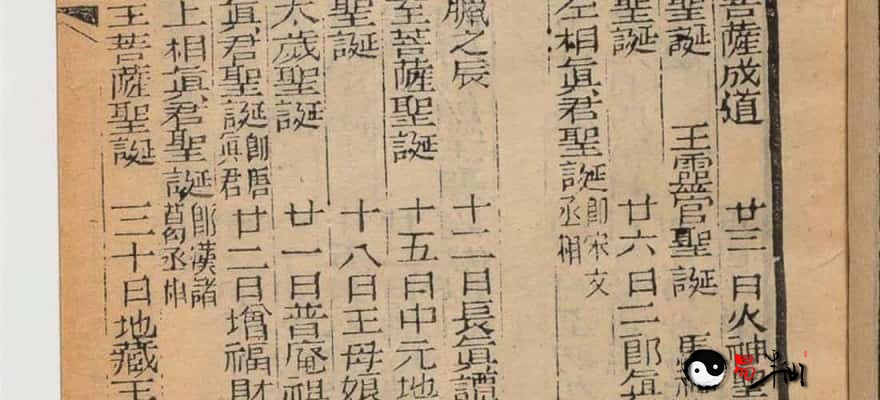 菩薩成道　廿三日火神聖
聖誕　王靈官聖誕　馬
聖誕　廿六日二郎眞
左相眞君聖誕即宋文丞相
臘之辰　十二日長眞譚
至菩薩聖誕　十五日中元地
聖誕　十八日王母娘
太歲聖誕　廿一日普庵祖
眞君聖誕即唐眞君　廿二日增福財
上相眞君聖誕即漢諸葛丞相
王菩薩聖誕　三十日地藏王